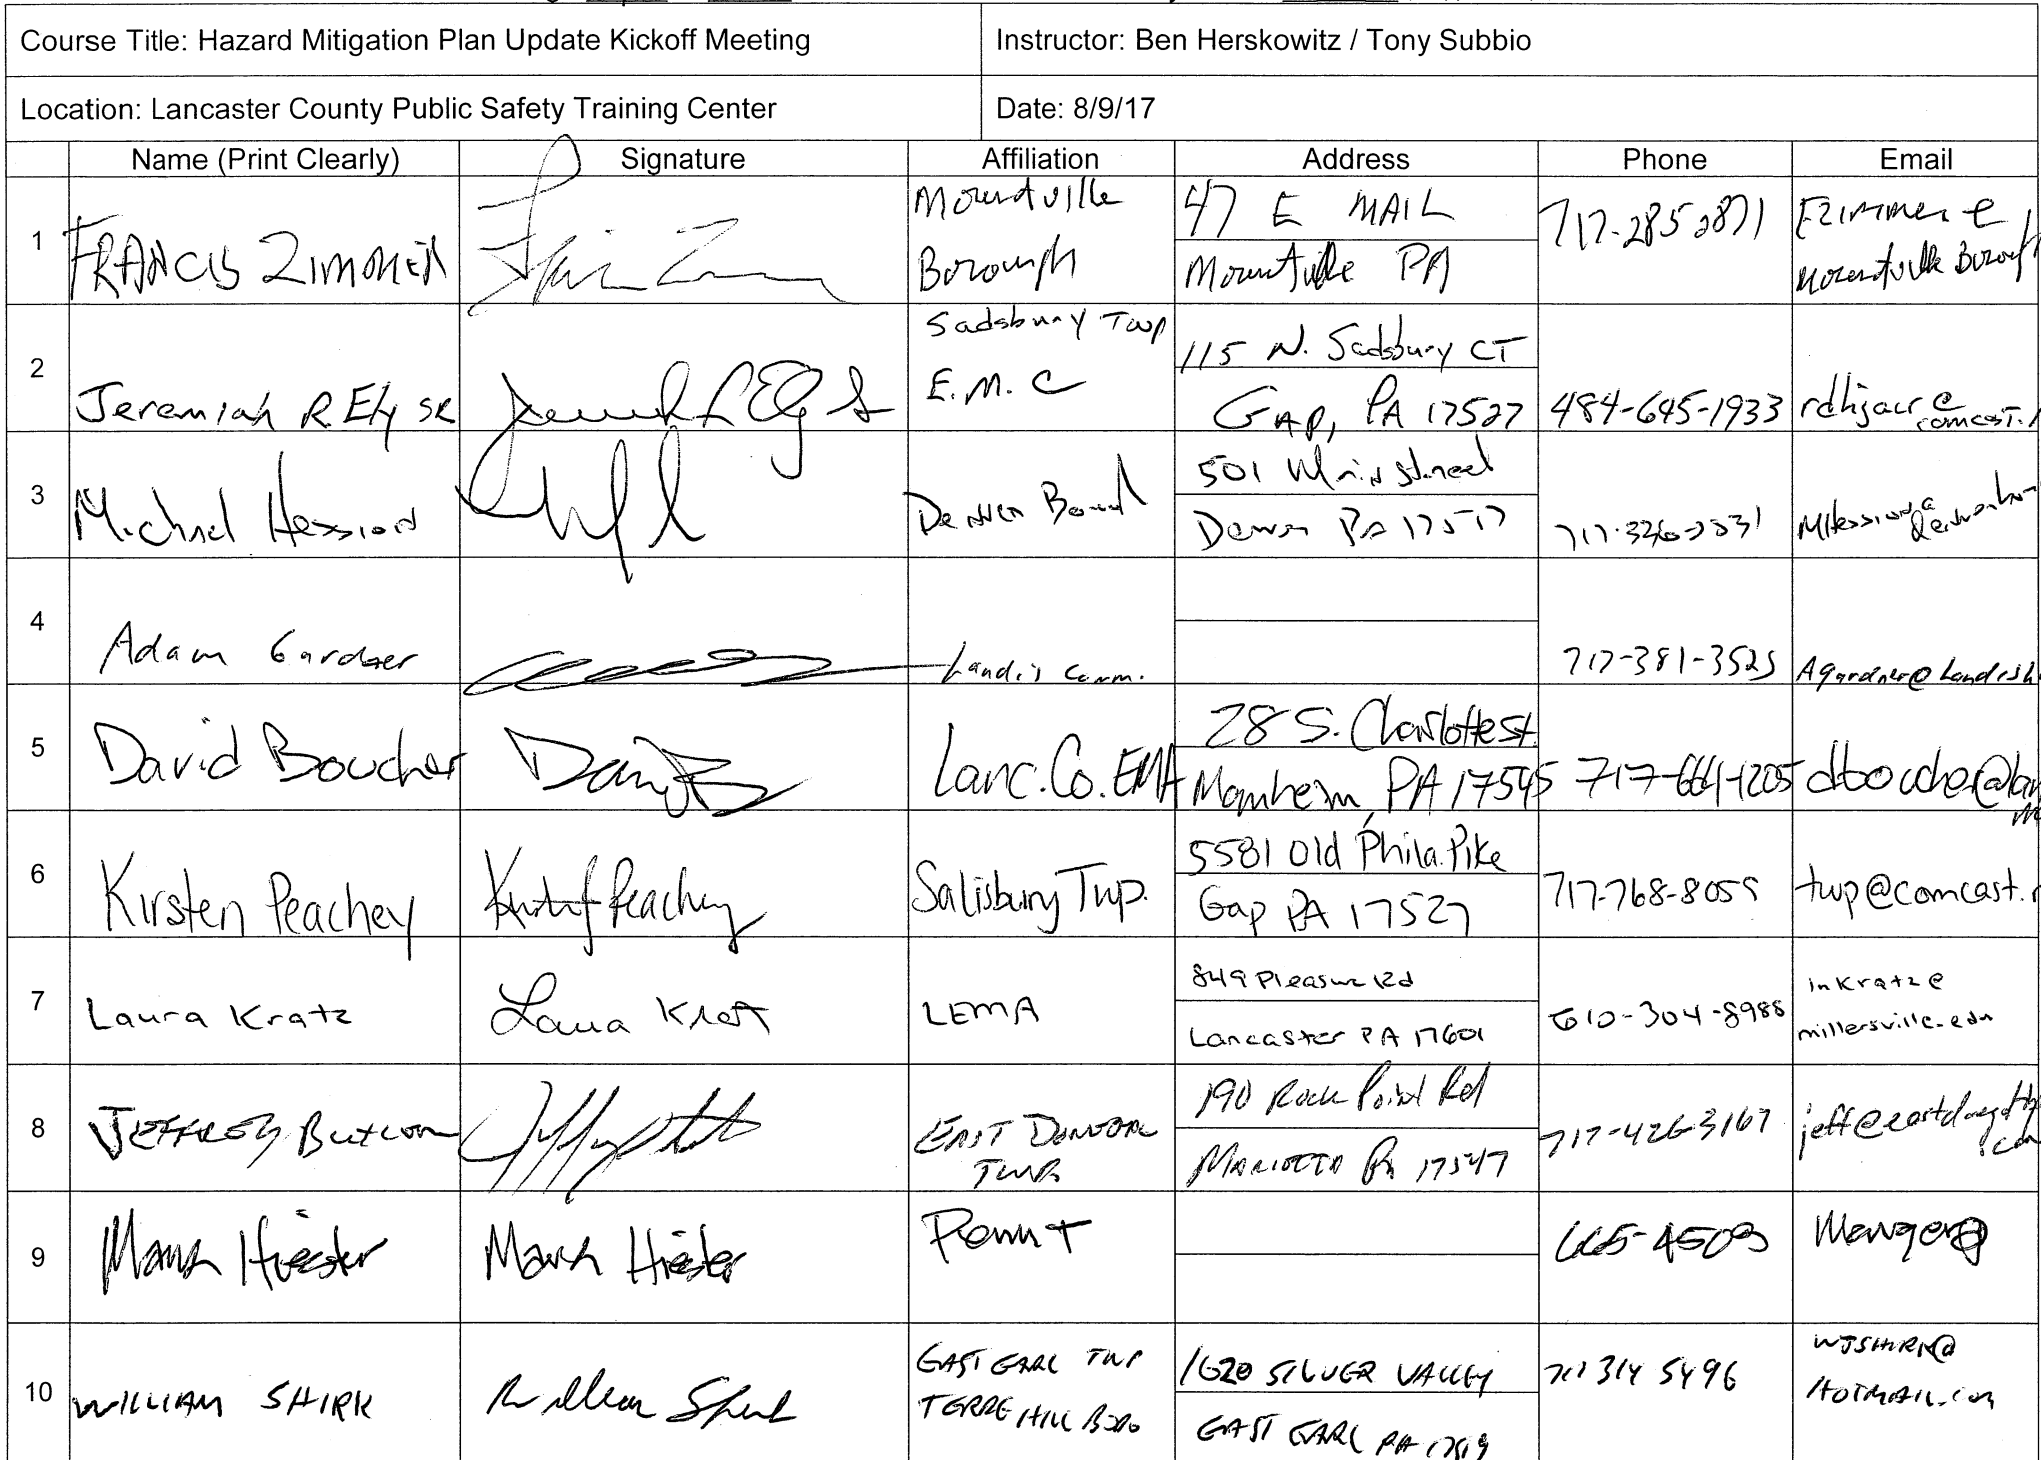 Course Title: Hazard Mitigation Plan Update Kickoff Meeting
Instructor: Ben Herskowitz / Tony Subbio
Location: Lancaster County Public Safety Training Center
Date: 8/9/17
Name (Print Clearly) Signature Affiliation Address Phone Email
1 FRANCIS ZIMMER Mountville Borough 47 E MAIL Mountville PA 717-285-2871 Fzimmer @ Mountville Borough
2 Jeremiah R Ely SR Sadsbury Twp E.M.C 115 N. Sadsbury CT GAP, PA 17527 484-645-1933 rdhjacr@ comcast.
3 Michael Hession Denver 501 Main Street Denver PA 17517 MHession@
4 Adam Gardner Landis Comm. 717-381-3525 Agardner@Landish
5 David Boucher Lanc. Co. EMA 28 S. Charlotte st. Manheim, PA 17545 717-664-1205 dboucher@lan
6 Kirsten Peachey Kirsten Peachey Salisbury Twp. 5581 Old Phila. Pike Gap PA 17527 717-768-8059 twp@comcast.
7 Laura Kratz Laura Kratz LEMA 849 Pleasure Rd Lancaster PA 17601 610-304-8988 lnkratz@ millersville.edu
8 JEFFREY BUTCON EAST DONEGAL TWP. 190 Rock Point Rd MARIETTA PA 17547 717-426-3167 jeff@eastdonegaltwp .com
9 Mark Hiester Mark Hiester Penn T 665-4508 Manager@
10 WILLIAM SHIRK William Shirk EAST EARL TWP TERRE HILL BORO 1620 SILVER VALLEY EAST EARL PA 17519 717 314 5496 WJSHIRK@ HOTMAIL.COM